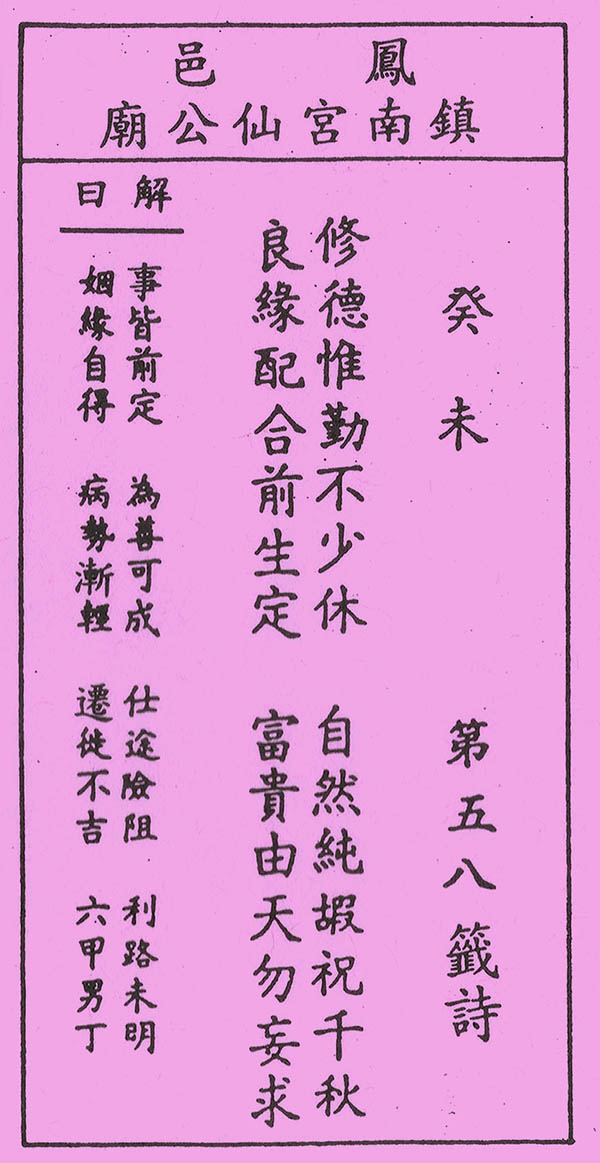 鳳邑
鎮南宮仙公廟
癸未 第五八籤詩
修德惟勤不少休 自然純嘏祝千秋
良緣配合前生定 富貴由天勿妄求
解曰
事皆前定 為善可成 仕途險阻 利路未明
姻緣自得 病勢漸輕 遷徙不吉 六甲男丁